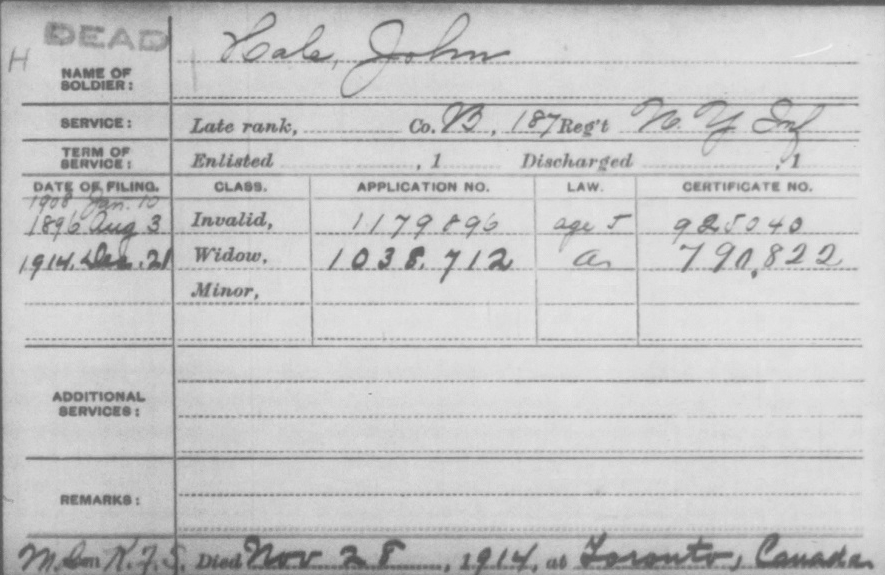 DEAD
H
NAME OF SOLDIER: Hale, John
SERVICE: Late rank, Co. B, 187 Reg't N. Y. Inf
TERM OF SERVICE: Enlisted , 1 Discharged , 1
DATE OF FILING. CLASS. APPLICATION NO. LAW. CERTIFICATE NO.
1908 Jan. 10
1896 Aug 3 Invalid, 1179896 age 5 925040
1914. Dec. 21 Widow, 1038.712 790,822
Minor,
ADDITIONAL SERVICES:
REMARKS:
Died Nov 28, 1914, at Toronto, Canada